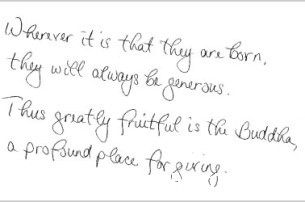 Wherever it is that they are born,
they will always be generous.
Thus greatly fruitful is the Buddha,
a profound place for giving.